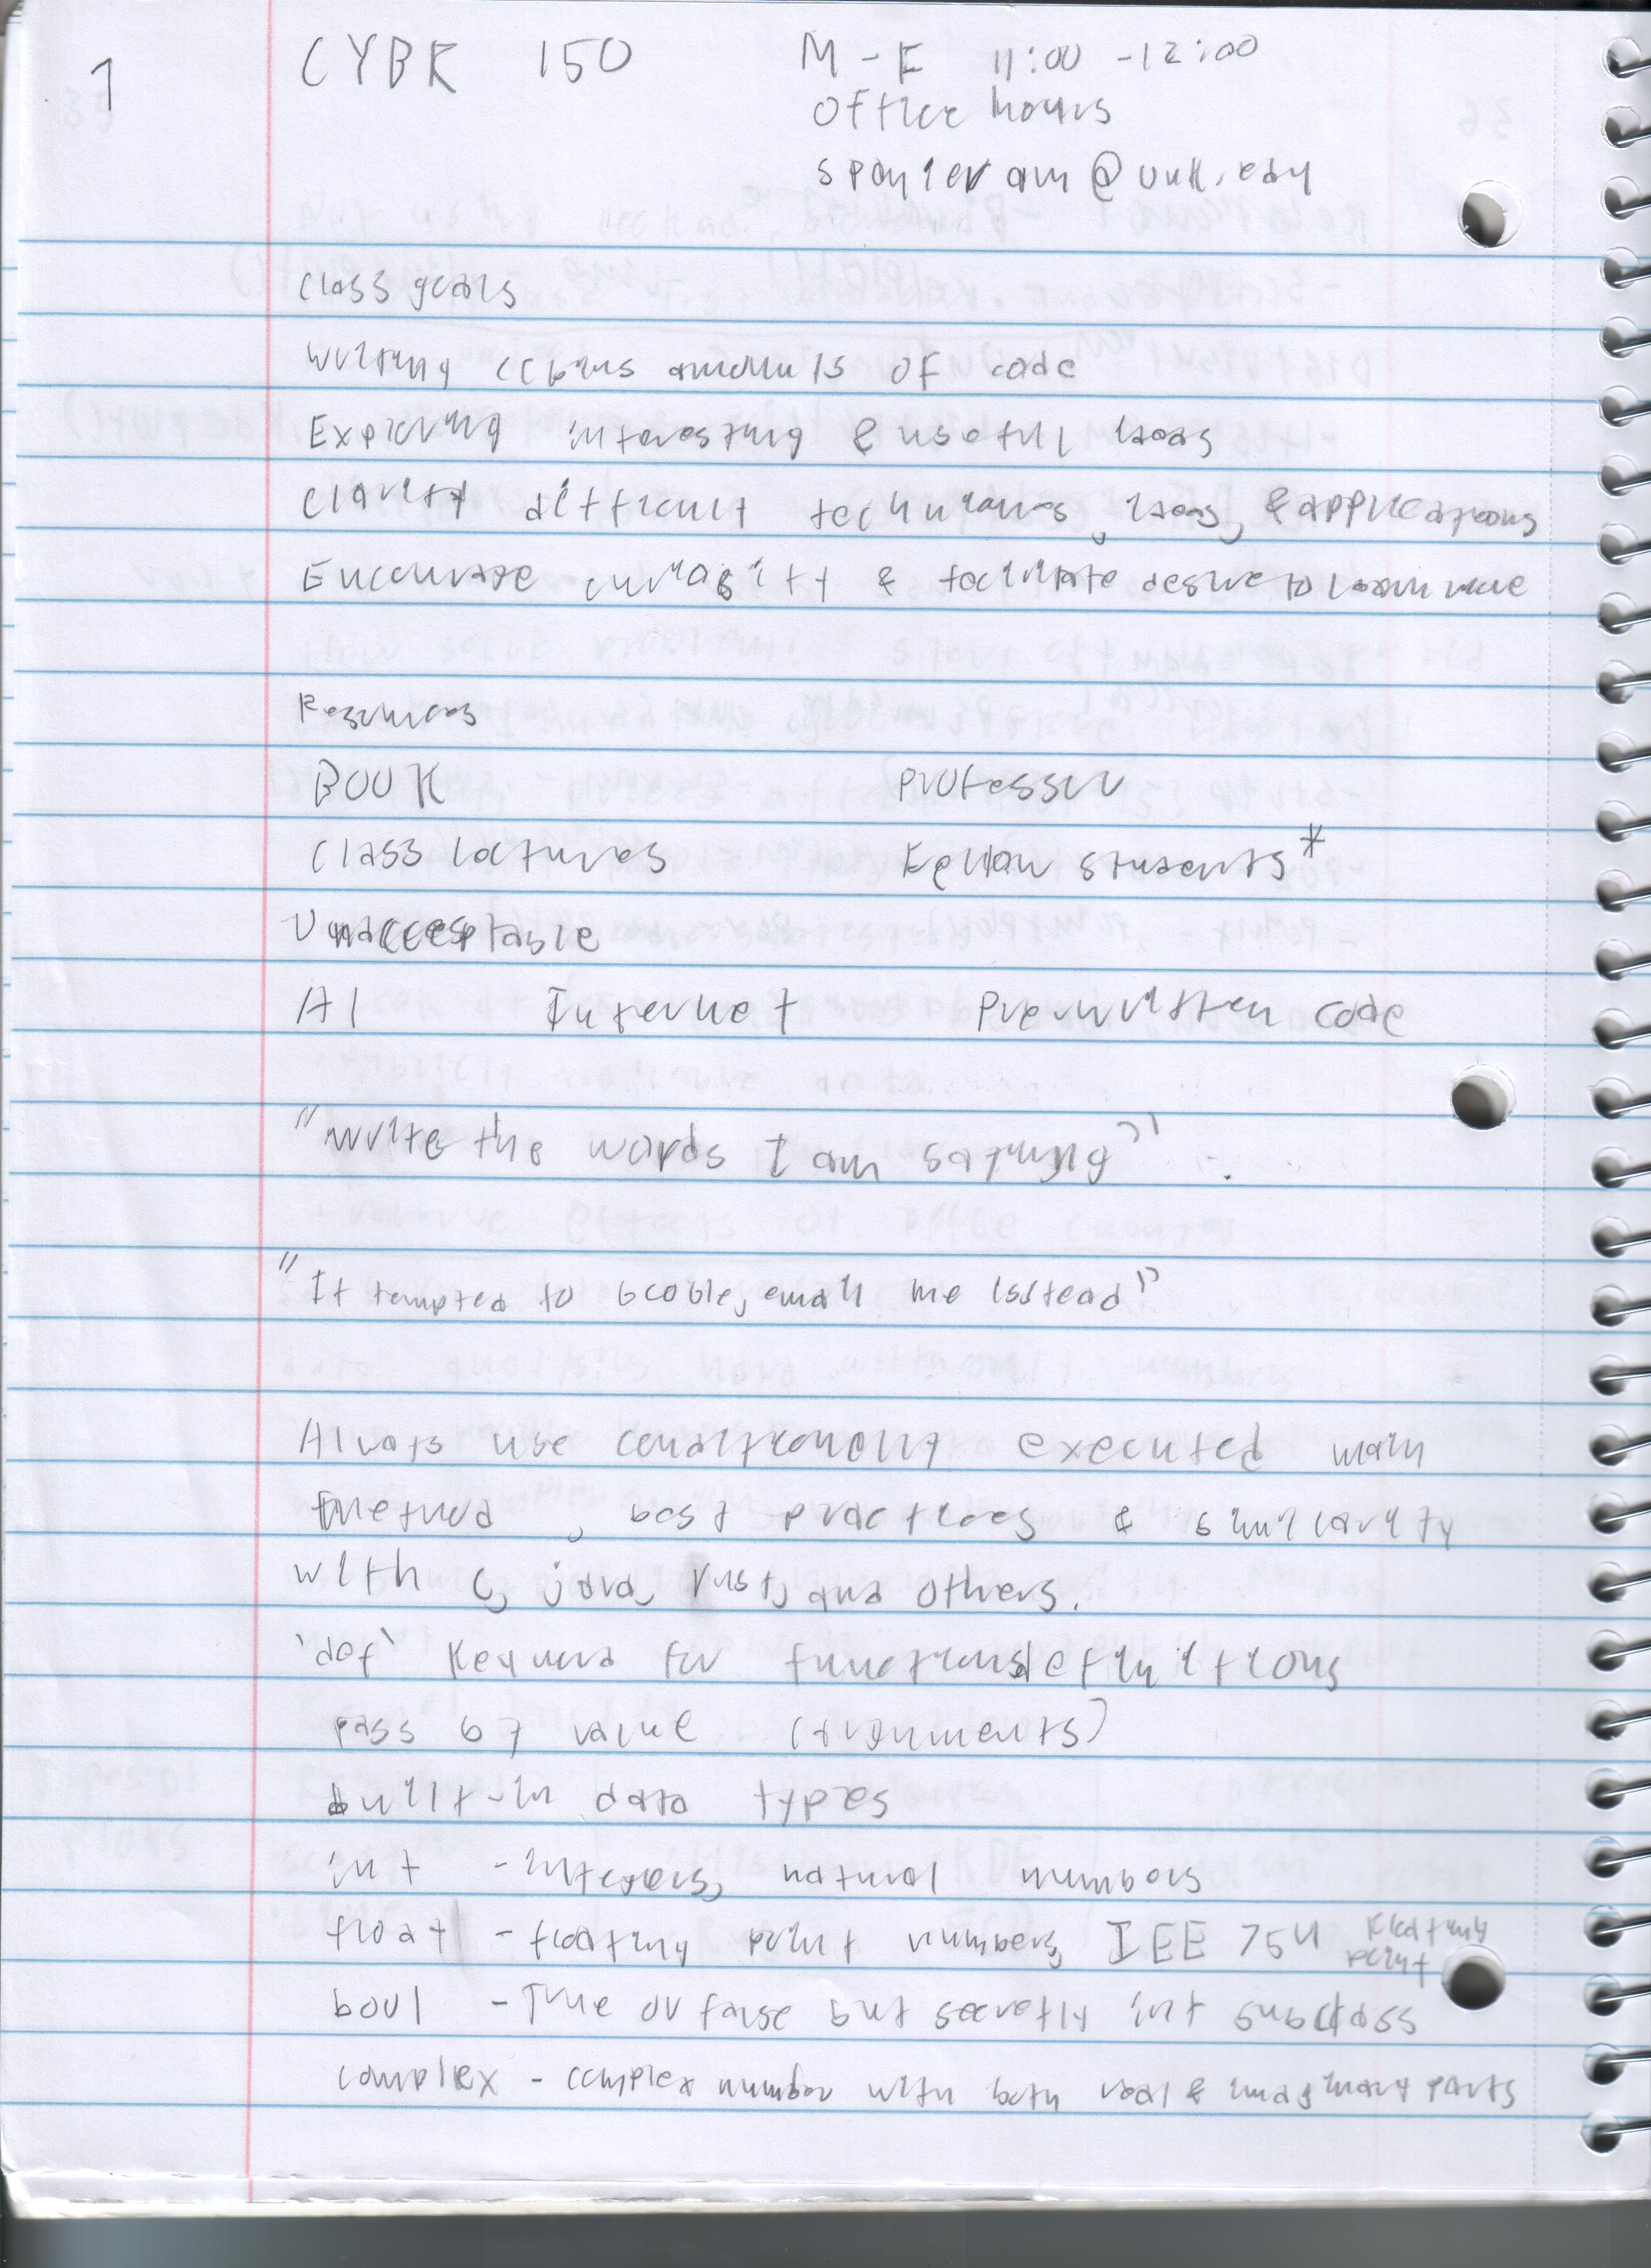 1
CYBR 150
M-F 11:00 -12:00
Office hours
spanieram@unk.edu
Class goals
Writing copious amounts of code
Exploring interesting & useful ideas
Clarify difficult techniques, ideas, & applications
Encourage curiosity & facilitate desire to learn more
Resources
Book Professor
Class lectures Fellow students*
Unacceptable
AI Internet Prewritten code
"write the words I am saying"
"If tempted to Google, email me isstead"
Always use conditionally executed main
method, best practices & similarity
with C, java, rust, and others.
'def' keyword for functions definitions
pass by value (arguments)
built-in data types
int - integers, natural numbers
float - floating point numbers, IEE 754 Floating point
bool - True or false but secretly int subclass
complex - complex number with both real & imaginary parts